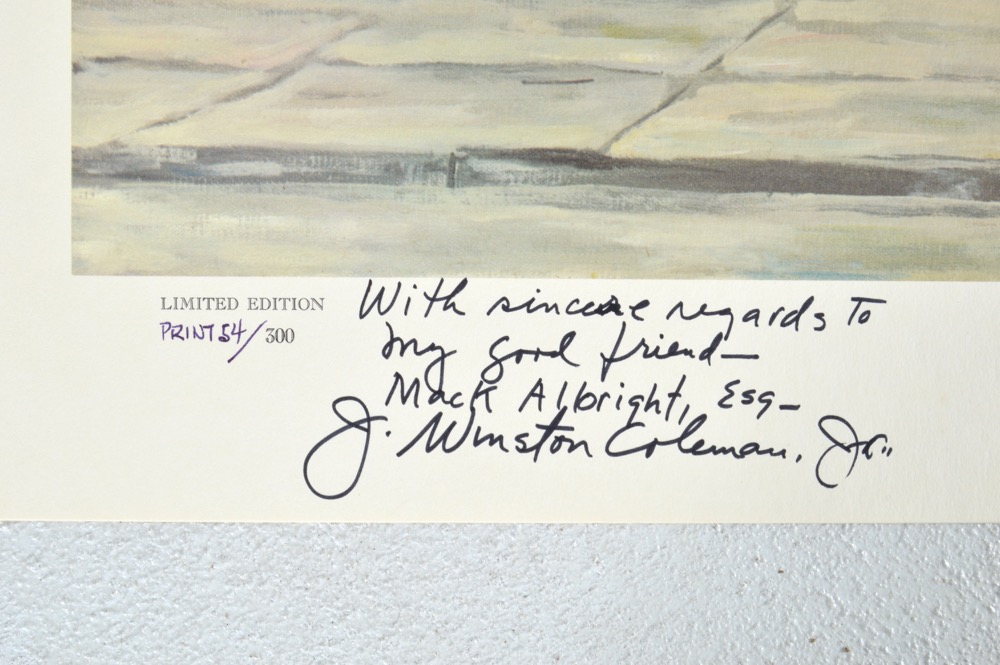 LIMITED EDITION
PRINT 54/300
With sincere regards to
my good friend—
Mack Albright, Esq—
J. Winston Coleman, Jr.